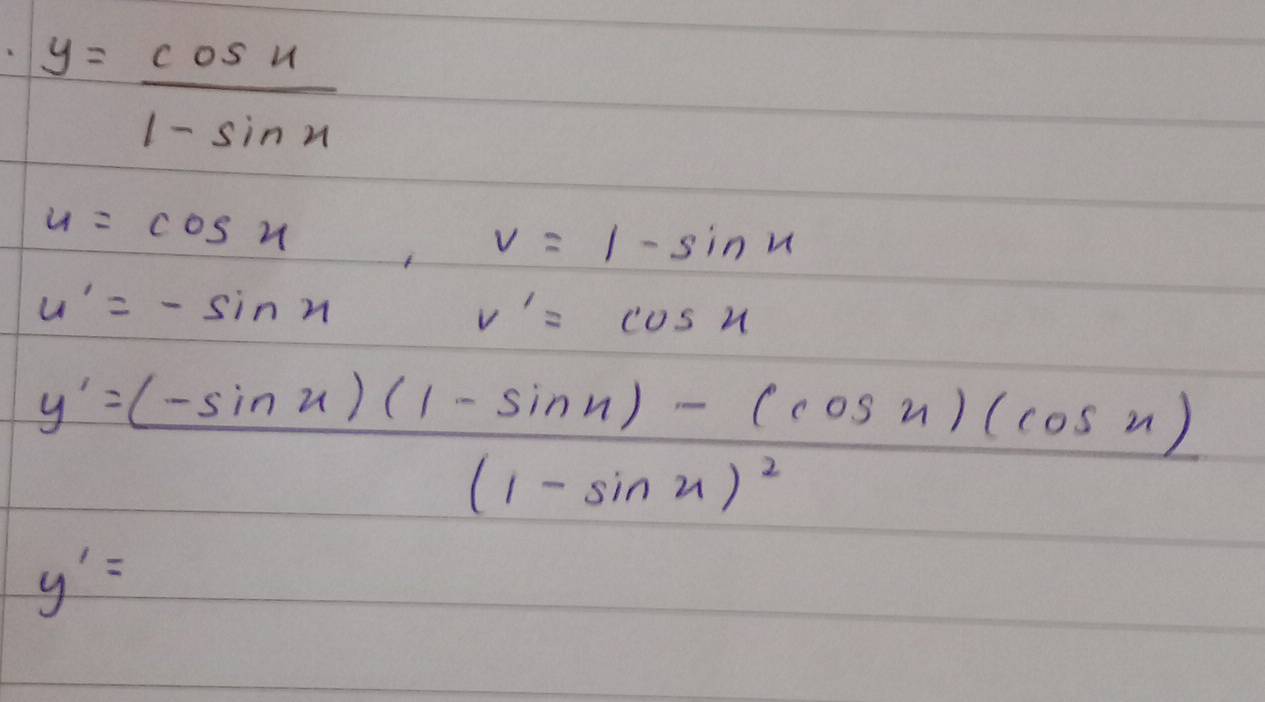 . y = cos x
1 - sin x
u = cos x , v = 1 - sin x
u' = - sin x v' = cos x
y' = (-sin x)(1 - sin x) - (cos x)(cos x)
(1 - sin x)²
y' =